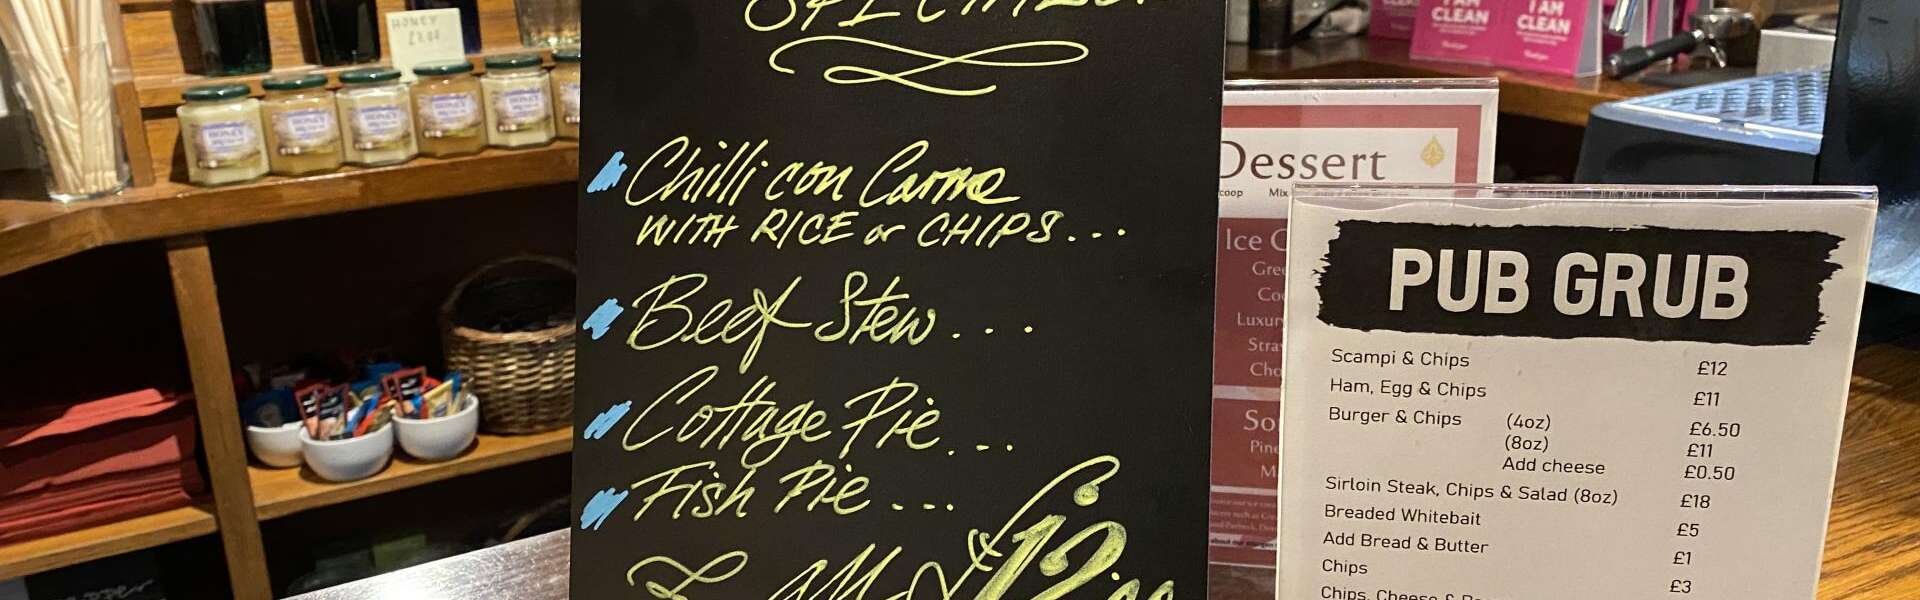 HONEY
HONEY
HONEY
HONEY
HONEY
HONEY
Chilli con Carne
WITH RICE or CHIPS...
Beef Stew...
Cottage Pie...
Fish Pie...
£12.00
I AM
CLEAN
I AM
CLEAN
Dessert
coop Mix
Ice C
PUB GRUB
Scampi & Chips £12
Ham, Egg & Chips £11
Burger & Chips (4oz) £6.50
(8oz) £11
Add cheese £0.50
Sirloin Steak, Chips & Salad (8oz) £18
Breaded Whitebait £5
Add Bread & Butter £1
Chips £3
Chips, Cheese &